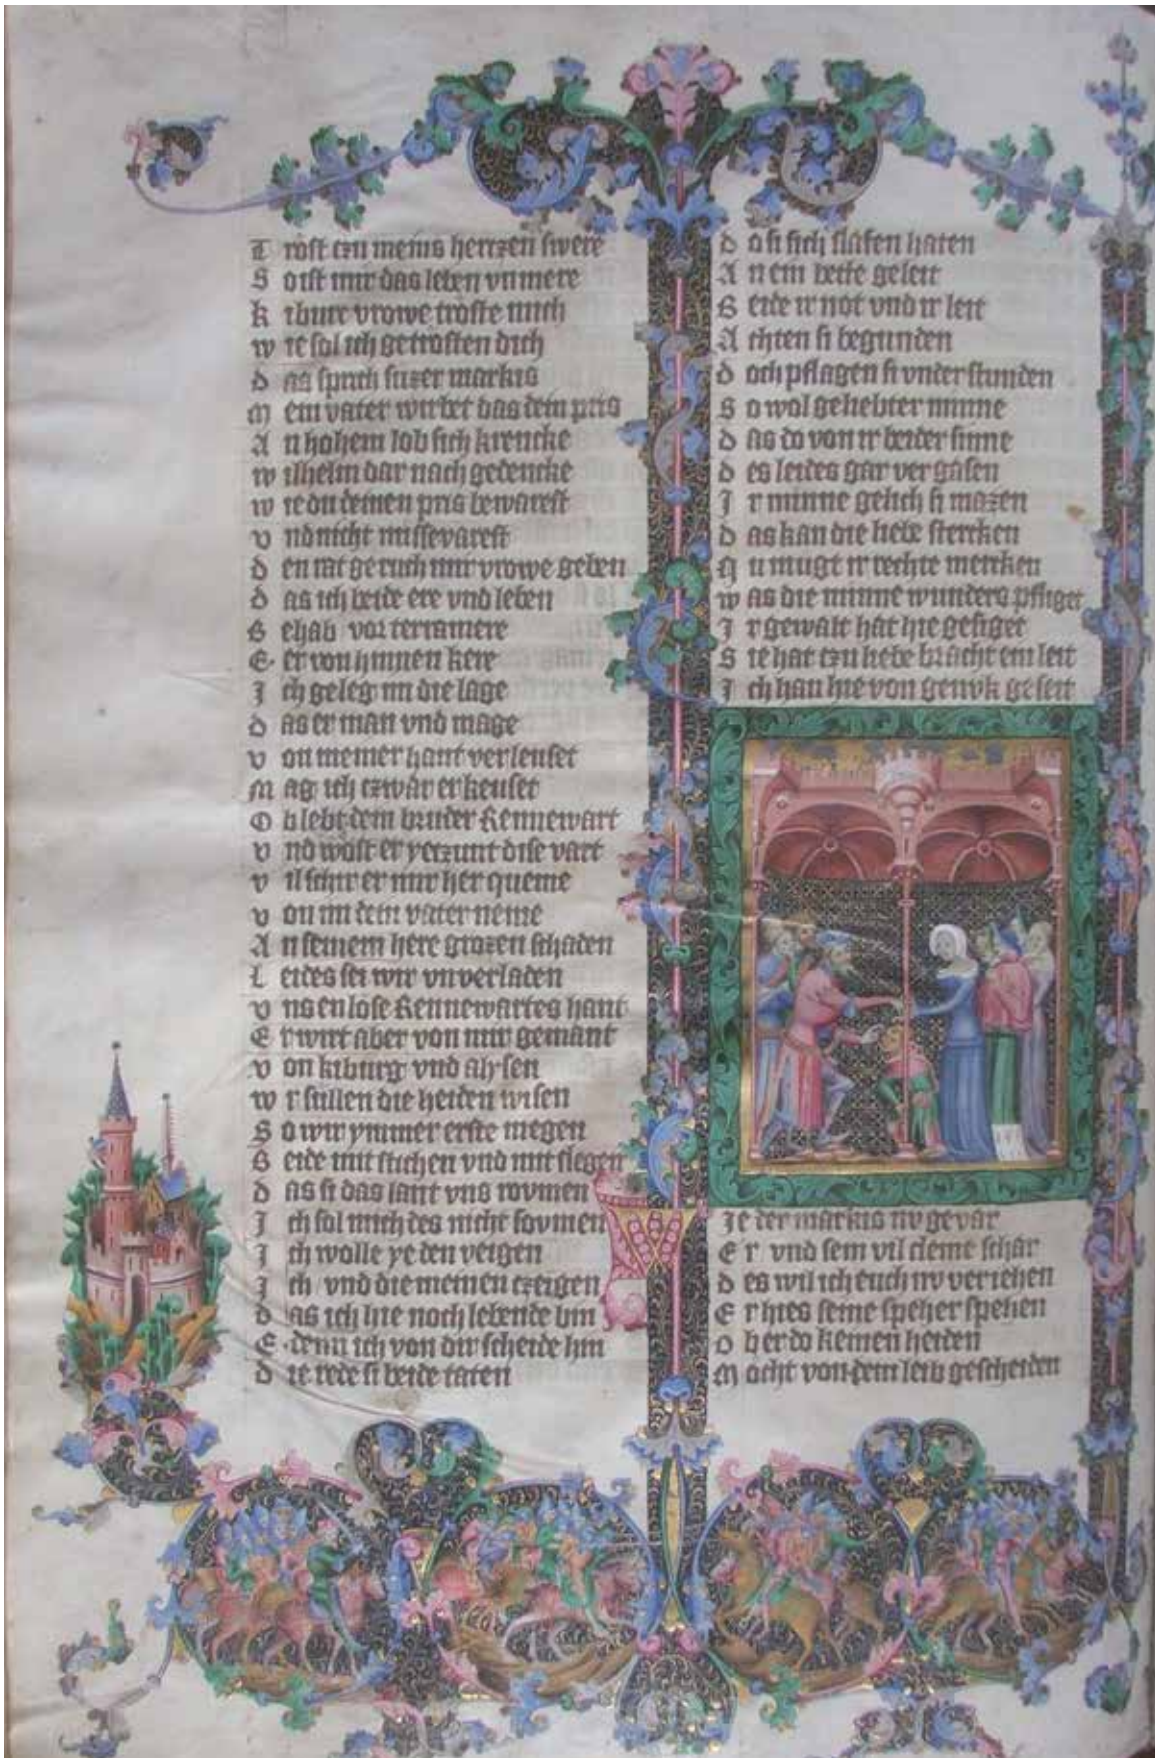 T rost czu meins herczen swere
S o ist mir das leben vnmere
K iburc vrowe troste mich
w ie sol ich getrosten dich
d as sprich suzer markis
M ein vater wirbet das dein pris
A n hohem lob sich krencke
w ilhelm dar nach gedencke
w ie du deinen pris bewarest
v nd nicht missevarest
d en rat geruch mir vrowe geben
d as ich beide ere vnd leben
B ehab vor terramere
E er von hinnen kere
J ch geleg im die lage
d as er man vnd mage
v on meiner hant verleuset
M ag ich czwar er keuset
O b lebt dein bruder Rennewart
v nd wost er yeczunt dise vart
v il schir er mir her queme
v on im dein vater neme
A n seinem here grozen schaden
L eides sei wir vnverladen
v ns enlose Rennewartes hant
E r wirt aber von mir gemant
v on kiburg vnd alysen
w r stillen die heiden wisen
S o wir ymmer erste megen
B eide mit stichen vnd mit slegen
d as si das lant vns rovmen
J ch sol mich des nicht sovmen
J ch wolle ye den veigen
J ch vnd die meinen czeigen
d as ich hie noch lebende bin
E denn ich von dir scheide hin
d ie rede si beide taten
d o si sich slafen haten
A n ein bette geleit
B eide ir not vnd ir leit
A chten si begunden
d och pflagen si vnder stunden
S o wol geliebter minne
d as do von ir beider sinne
d es leides gar ver gasen
J r minne gelich si mazen
d as kan die liebe sterken
N u mugt ir rechte merken
w as die minne wunders pfliget
J r gewalt hat hie gesiget
S ie hat czu liebe bracht ein leit
J ch han hie von genvk geseit
W
Je der markis nv gevar
E r vnd sein vil cleine schar
d es wil ich euch nv veriehen
E r hies seine speher spehen
O b er do keinen heiden
M ocht von dem leib gescheiden